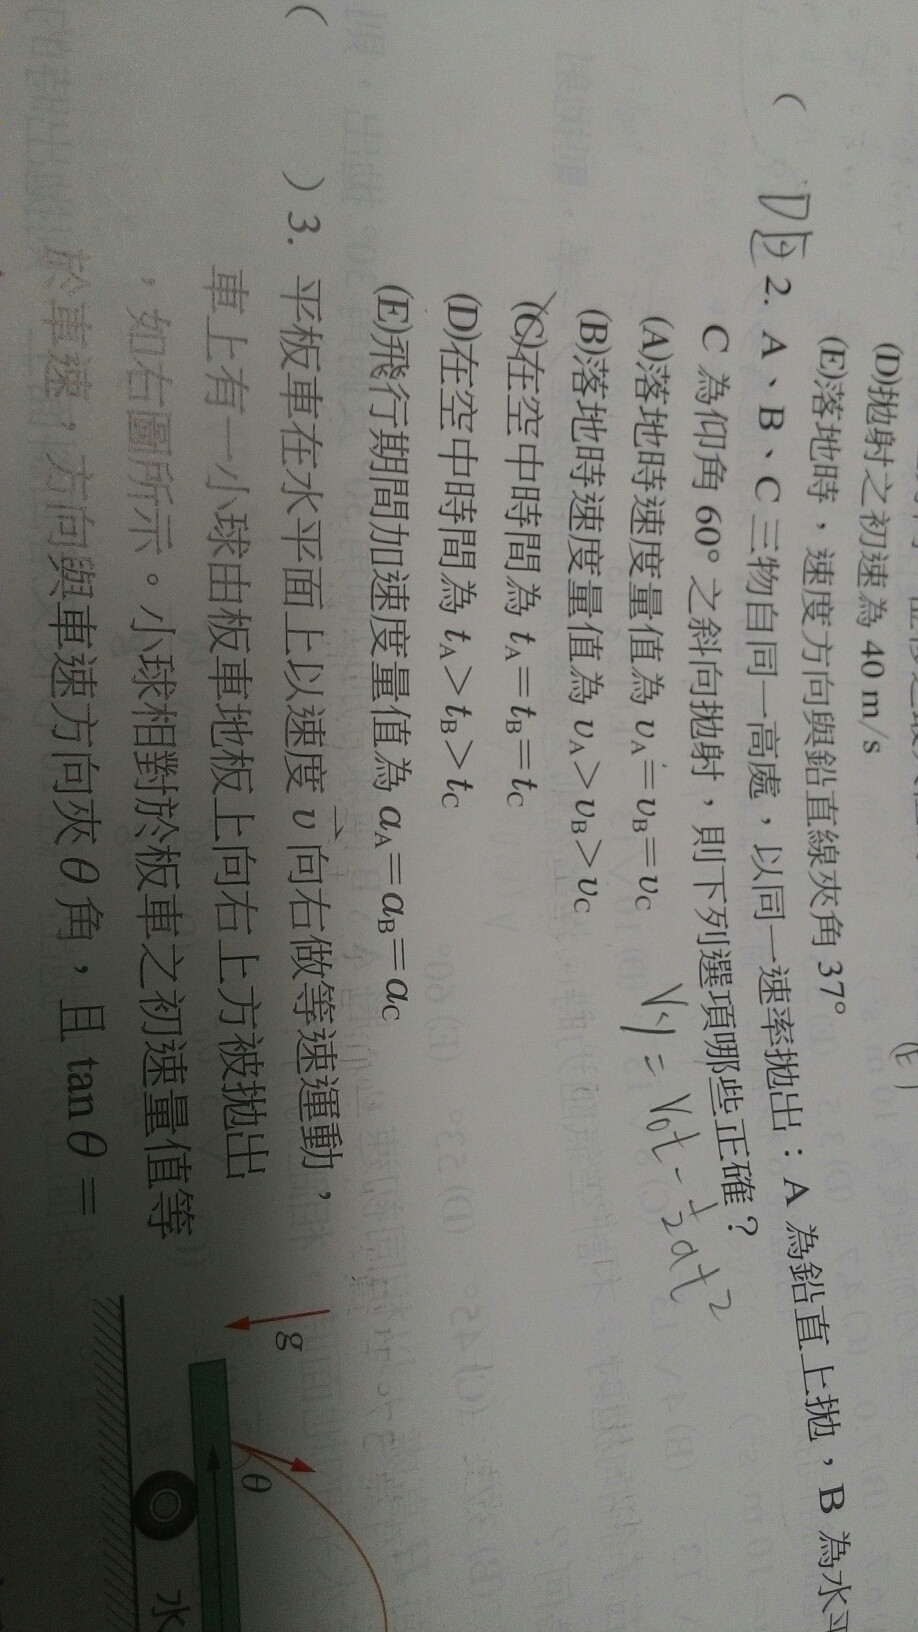 (D)拋射之初速為 40 m/s
(E)落地時，速度方向與鉛直線夾角 37°
( DE 2. A、B、C 三物自同一高處，以同一速率拋出：A 為鉛直上拋，B 為水平
C 為仰角 60° 之斜向拋射，則下列選項哪些正確？
(A)落地時速度量值為 vA＝vB＝vC
Vy = V₀t - ½at²
(B)落地時速度量值為 vA＞vB＞vC
(C)在空中時間為 tA＝tB＝tC
(D)在空中時間為 tA＞tB＞tC
(E)飛行期間加速度量值為 aA＝aB＝aC
( ) 3. 平板車在水平面上以速度 v 向右做等速運動，
車上有一小球由板車地板上向右上方被拋出
，如右圖所示。小球相對於板車之初速量值等
於車速，方向與車速方向夾 θ 角，且 tan θ ＝
g
θ
水